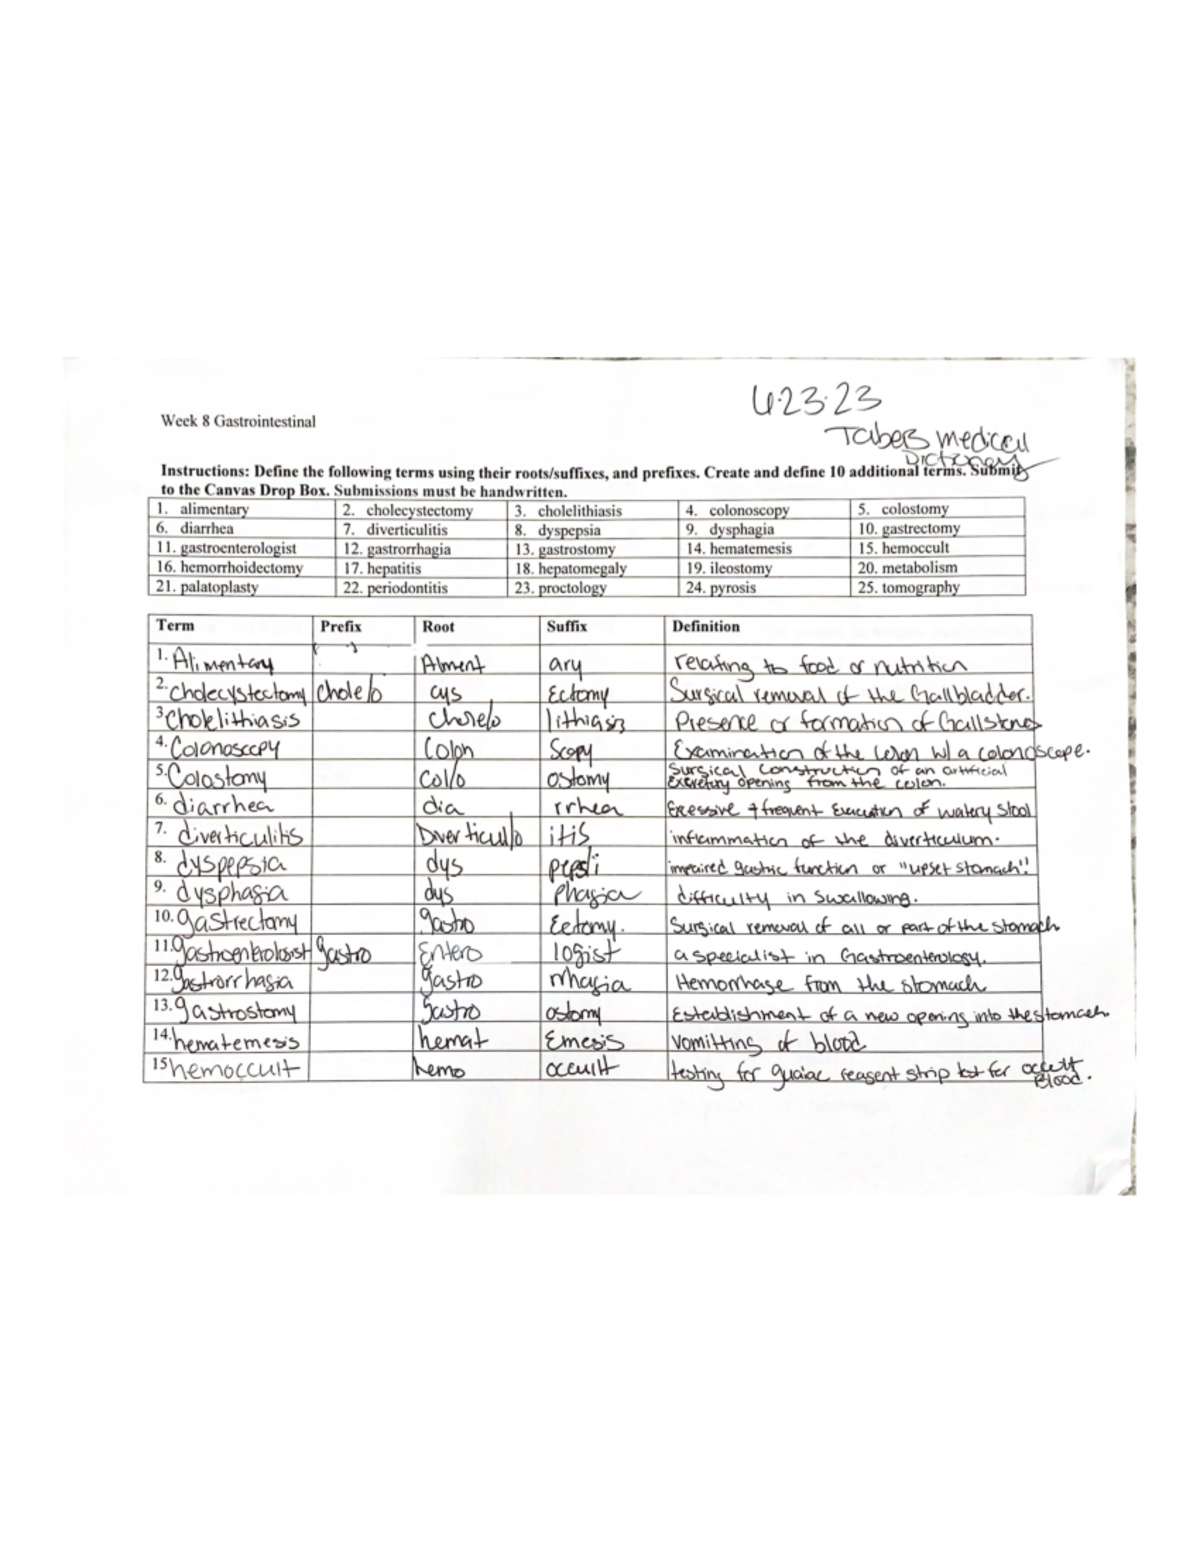 4.23.23
Week 8 Gastrointestinal
Tabers Medical
Dictionary
Instructions: Define the following terms using their roots/suffixes, and prefixes. Create and define 10 additional terms. Submit
to the Canvas Drop Box. Submissions must be handwritten.
1. alimentary 2. cholecystectomy 3. cholelithiasis 4. colonoscopy 5. colostomy
6. diarrhea 7. diverticulitis 8. dyspepsia 9. dysphagia 10. gastrectomy
11. gastroenterologist 12. gastrorrhagia 13. gastrostomy 14. hematemesis 15. hemoccult
16. hemorrhoidectomy 17. hepatitis 18. hepatomegaly 19. ileostomy 20. metabolism
21. palatoplasty 22. periodontitis 23. proctology 24. pyrosis 25. tomography
Term Prefix Root Suffix Definition
1. Alimentary Alment ary relating to food or nutrition
2. cholecystectomy chole/o cys Ectomy Surgical removal of the Gallbladder.
3 Cholelithiasis chole/o lithiasis Presence or formation of Gallstones
4. Colonoscopy Colon Scopy Examination of the colon w/ a colonoscope.
5. Colostomy col/o ostomy Surgical Construction of an artificial
excretory opening from the colon.
6. diarrhea dia rrhea Exessive + frequent Execution of watery stool
7. diverticulitis Diverticul/o itis inflammation of the diverticulum.
8. dyspepsia dys pepsi impaired gastric function or "upset stomach"!
9. dysphagia dys Phagia difficulty in swallowing.
10. gastrectomy gastro Eectomy. Surgical removal of all or part of the stomach
11. gastroenterologist gastro Entero logist a specialist in Gastroenterology.
12. gastrorrhagia gastro rrhagia Hemorrhage from the stomach
13. gastrostomy gastro ostomy Establishment of a new opening into the stomach.
14. hematemesis hemat Emesis vomitting of blood
15 hemoccult hemo occult testing for guaiac reagent strip test for occult
Blood.